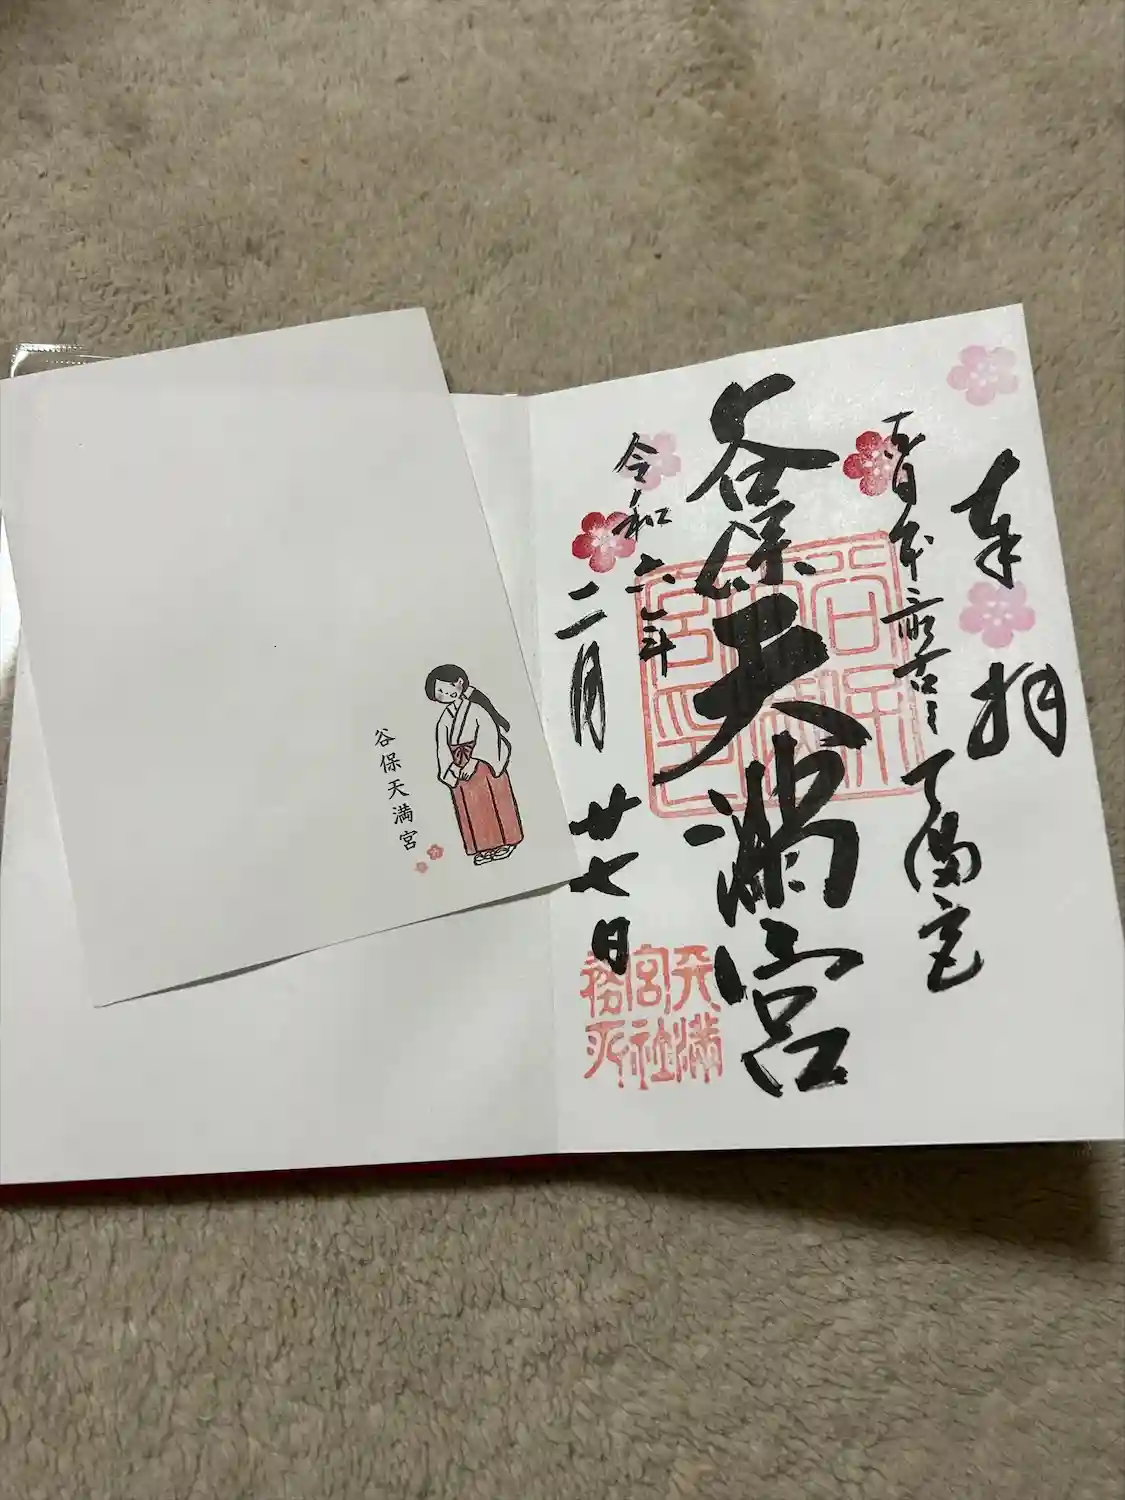 奉拝
東日本最古天満宮
谷保天満宮
令和六年
二月廿七日
谷保天満宮印
天満宮社務所
谷保天満宮